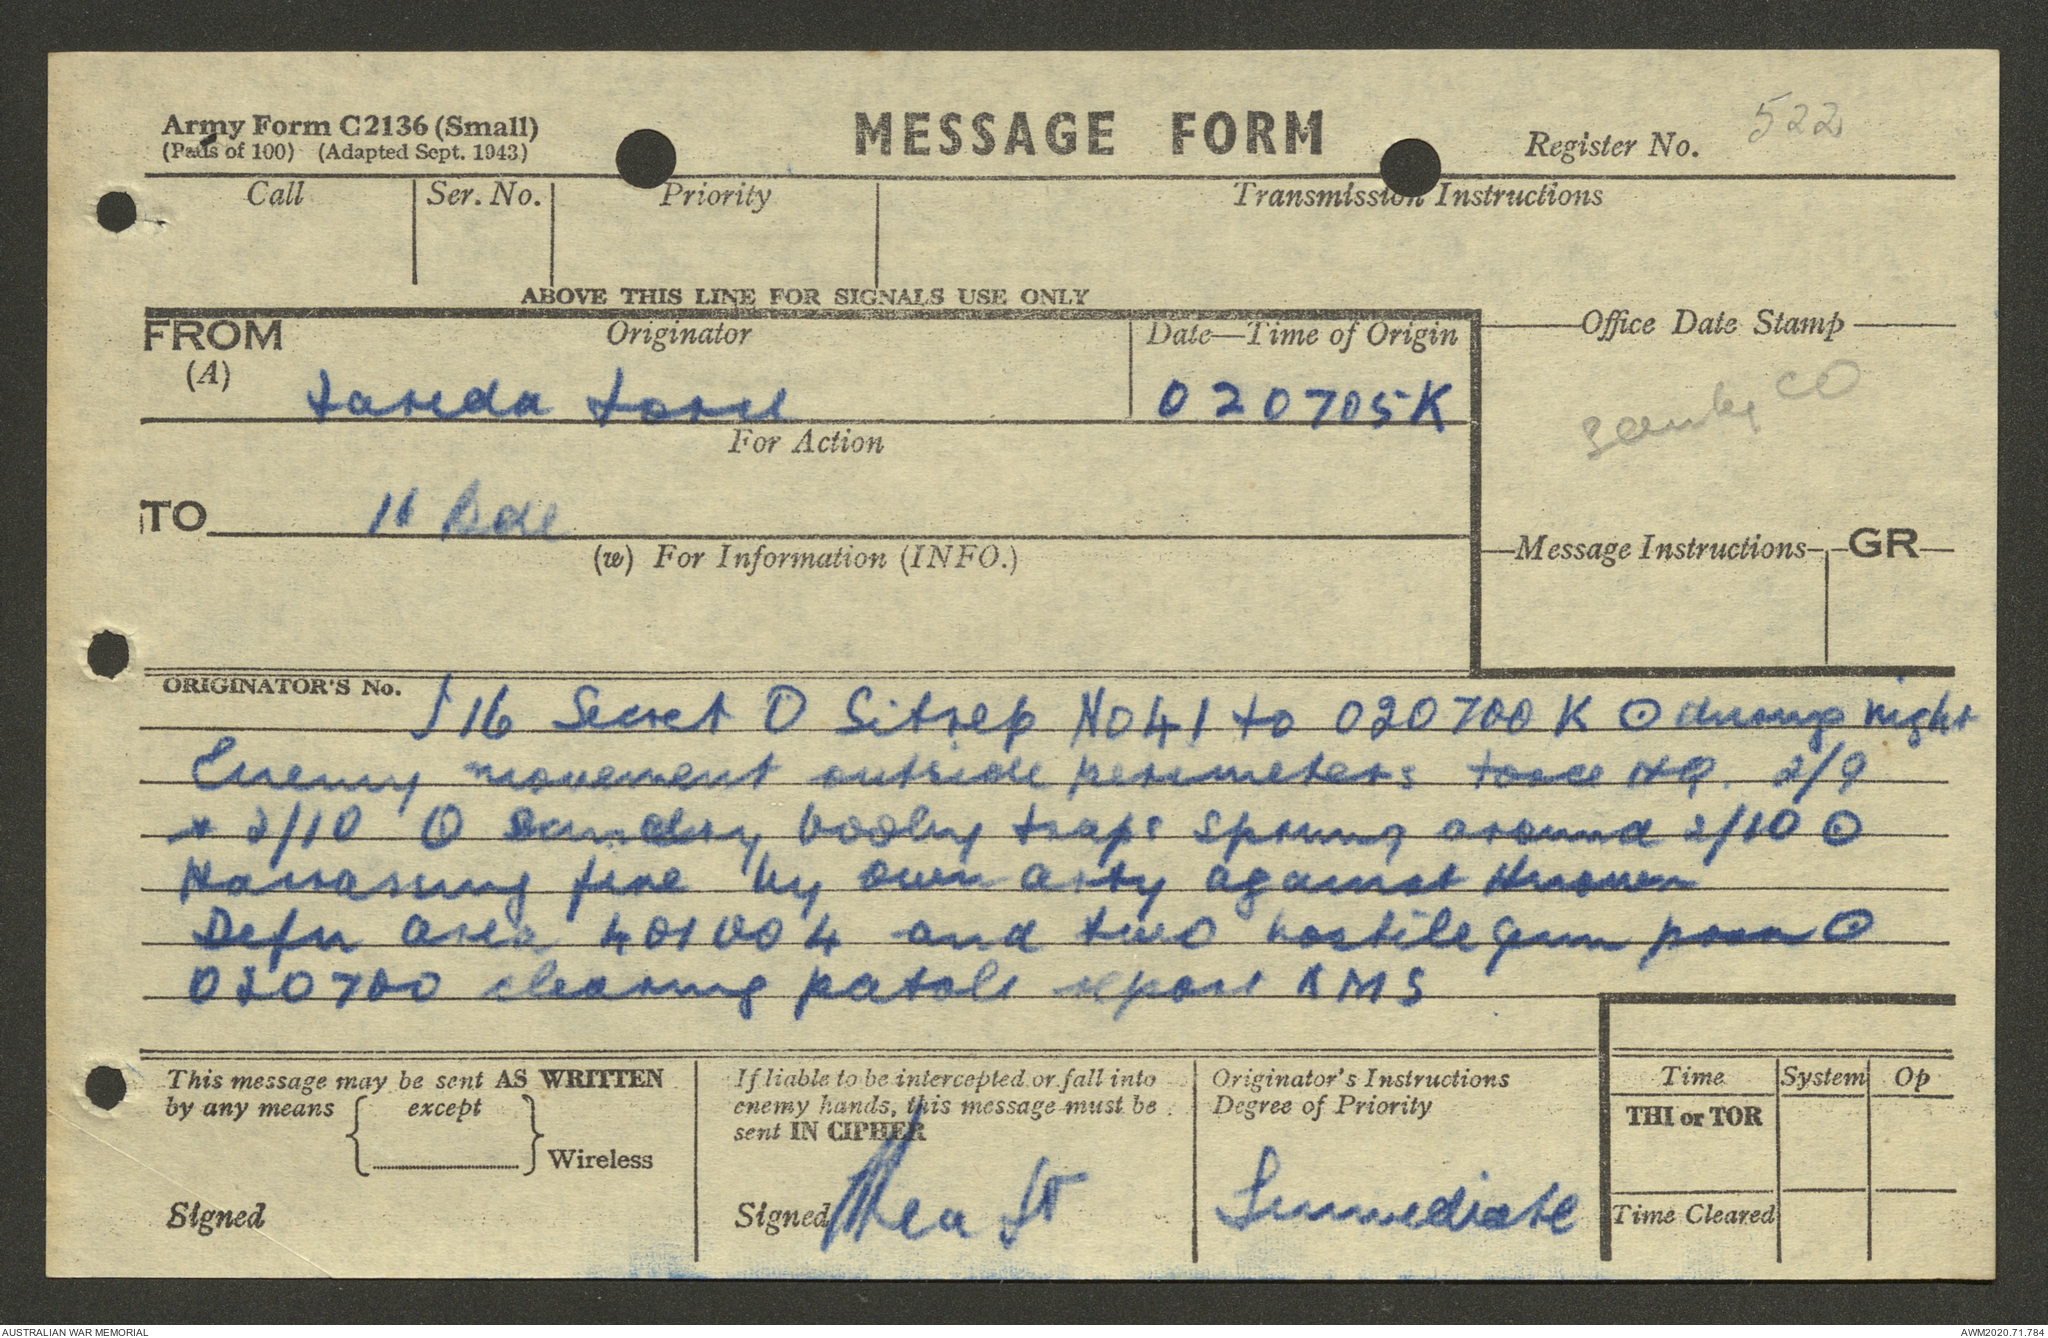 Army Form C2136 (Small)
(Pads of 100) (Adapted Sept. 1943)
MESSAGE FORM
Register No. 522
Call
Ser. No.
Priority
Transmission Instructions
ABOVE THIS LINE FOR SIGNALS USE ONLY
FROM
(A)
Originator
Date—Time of Origin
Office Date Stamp
force
020705K
CO
For Action
TO
Bde
(w) For Information (INFO.)
Message Instructions
GR
ORIGINATOR'S No.
J16 Secret O Sitrep No 41 to 020700K O during night
Enemy movement outside perimeters force HQ. 2/9
+ 2/10 O Sundry booby traps sprung around 2/10 O
Harrassing fire by own arty against known
Defn area 401004 and two hostile gun posn O
020700 clearing patols report AMS
This message may be sent AS WRITTEN
by any means { except } Wireless
Signed
If liable to be intercepted or fall into
enemy hands, this message must be
sent IN CIPHER
Signed Lt
Originator's Instructions
Degree of Priority
Immediate
Time
System
Op
THI or TOR
Time Cleared
AUSTRALIAN WAR MEMORIAL
AWM2020.71.784